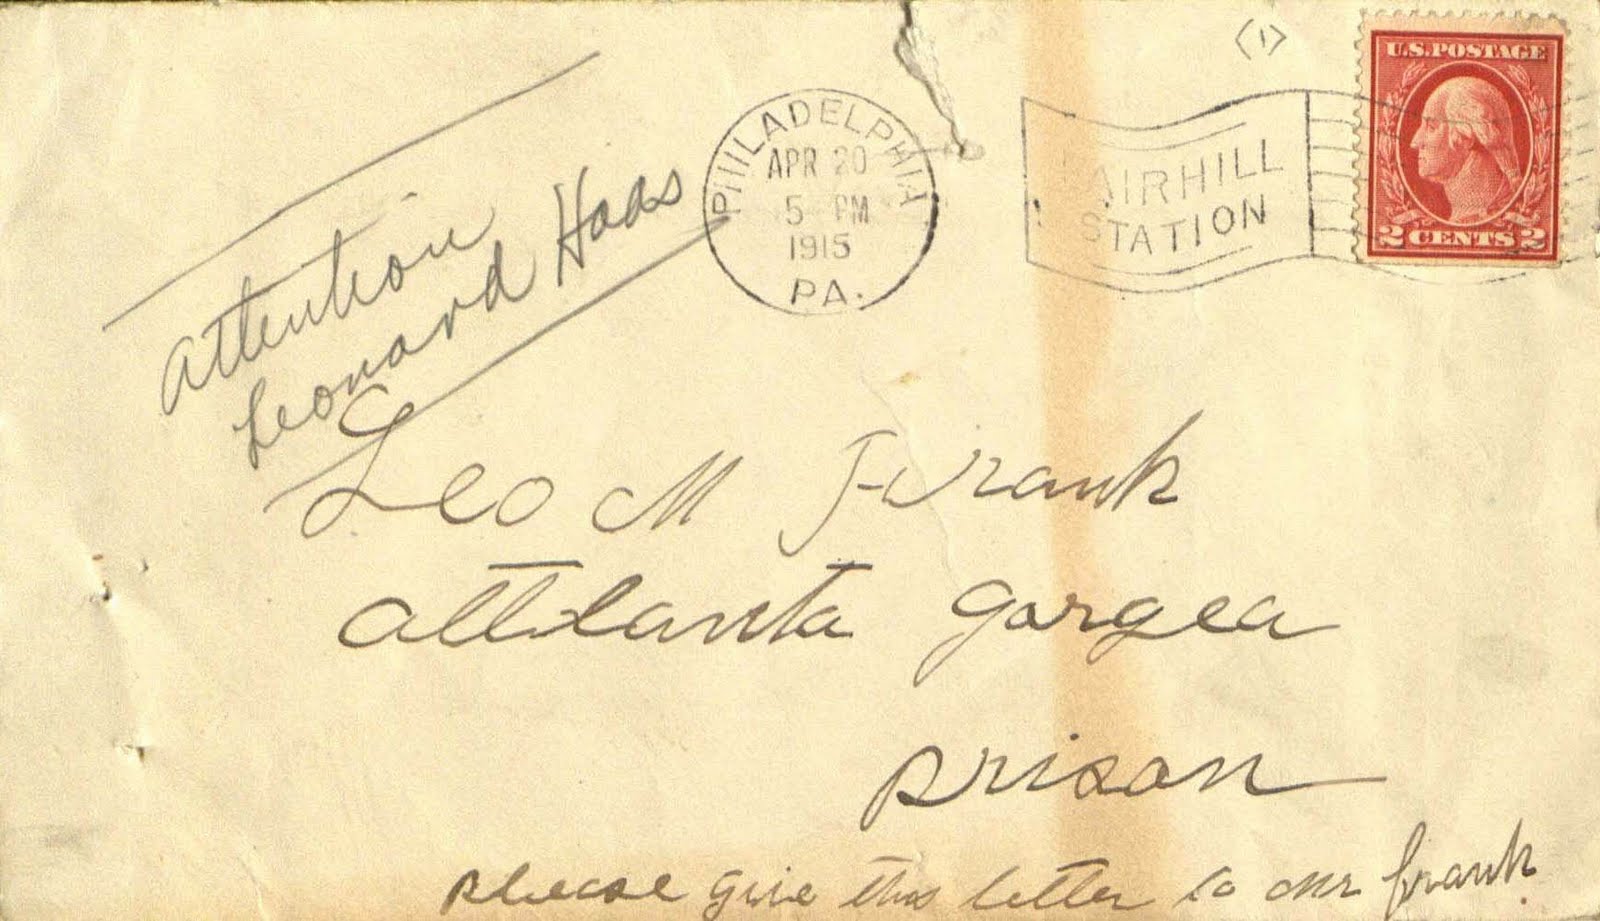 (1)
U.S. POSTAGE
2 CENTS 2
PHILADELPHIA
APR 20
5 PM
1915
PA.
FAIRHILL
STATION
Attention
Leonard Haas
Leo M Frank
attlanta gorgea
prison
please give this letter to Mr frank.